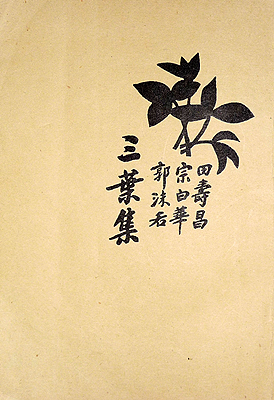 田壽昌
宗白華
郭沫若
三葉集